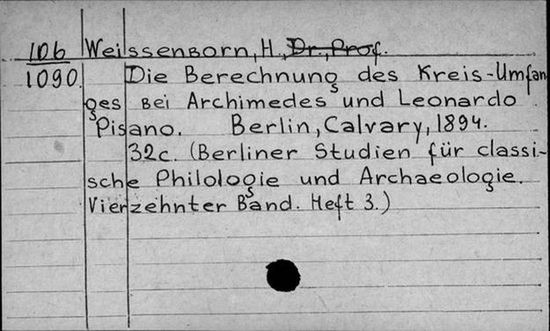 106 Weissenborn, H., Dr., Prof.
1090. Die Berechnung des Kreis-Umfan
ges bei Archimedes und Leonardo
Pisano. Berlin, Calvary, 1894.
32c. (Berliner Studien für classi-
sche Philologie und Archaeologie.
Vierzehnter Band. Heft 3.)